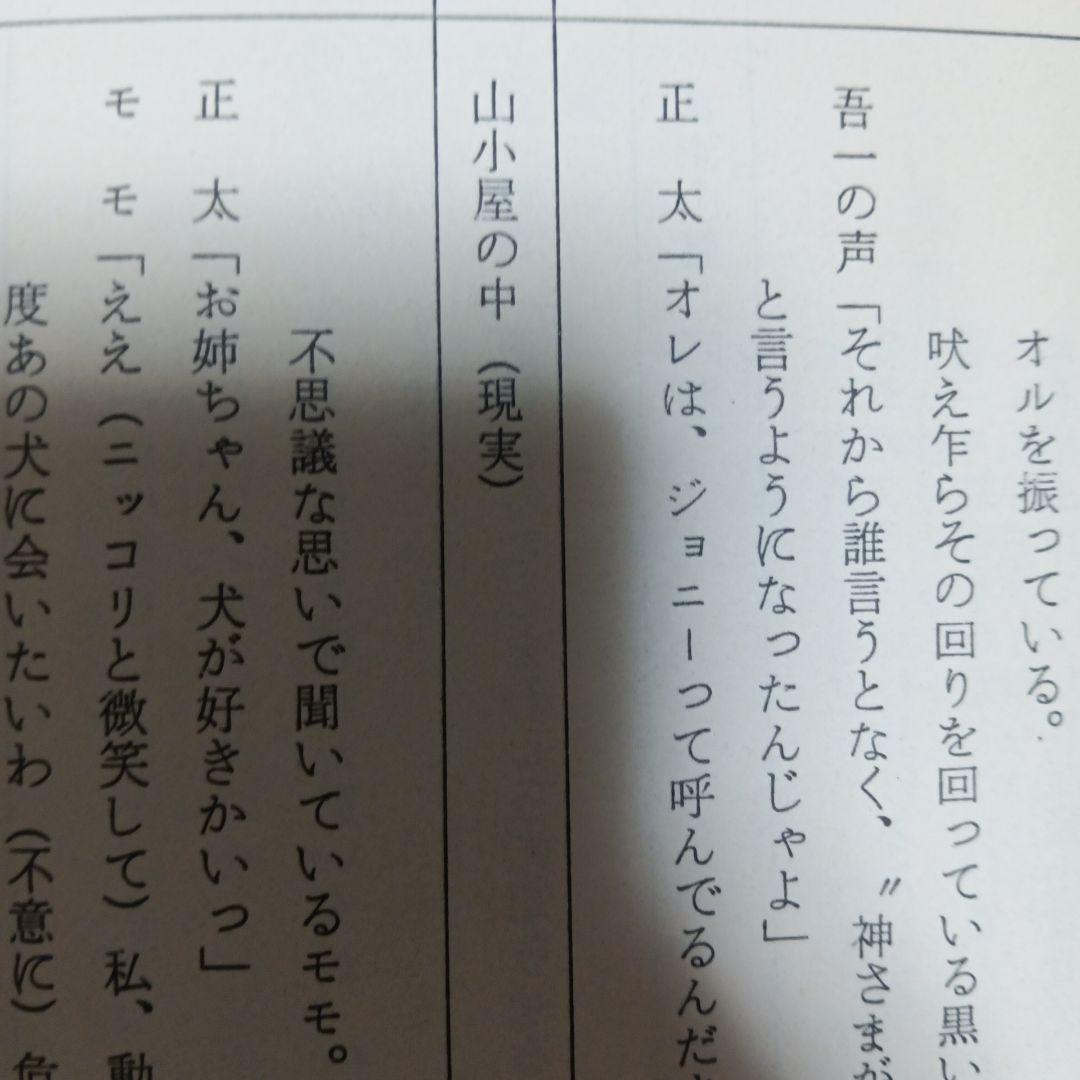 オルを振っている。
吠え乍らその回りを回っている黒い
吾一の声「それから誰言うとなく、〝神さまが
と言うようになったんじゃよ」
正太「オレは、ジョニーって呼んでるんだ
山小屋の中（現実）
不思議な思いで聞いているモモ。
正太「お姉ちゃん、犬が好きかいっ」
モモ「ええ（ニッコリと微笑して）私、動
度あの犬に会いたいわ（不意に）危